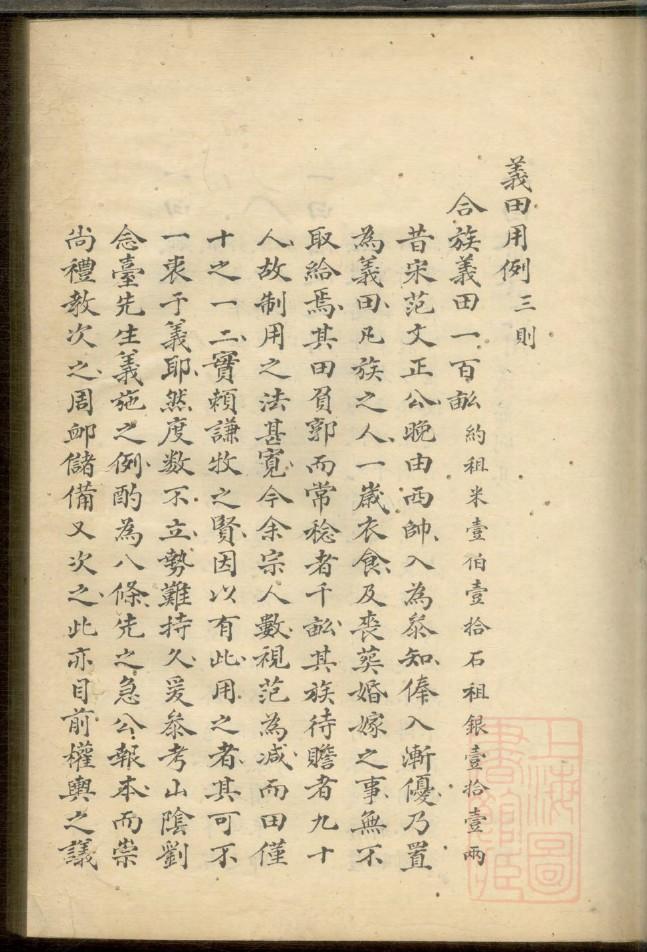 義田用例三則
合族義田一百畝約租米壹伯壹拾石租銀壹拾壹兩
昔宋范文正公晚由西帥入為叅知俸入漸優乃置
為義田凡族之人一嵗衣食及喪葬婚嫁之事無不
取給焉其田負郭而常稔者千畝其族待贍者九十
人故制用之法甚寬今余宗人數視范為减而田僅
十之一二實頼謙牧之賢因以有此用之者其可不
一衷于義耶然度数不立勢難持久爰叅考山陰劉
念臺先生義施之例酌為八條先之急公報本而崇
尚禮教次之周卹儲備又次之此亦目前權輿之議
上海圖書館藏